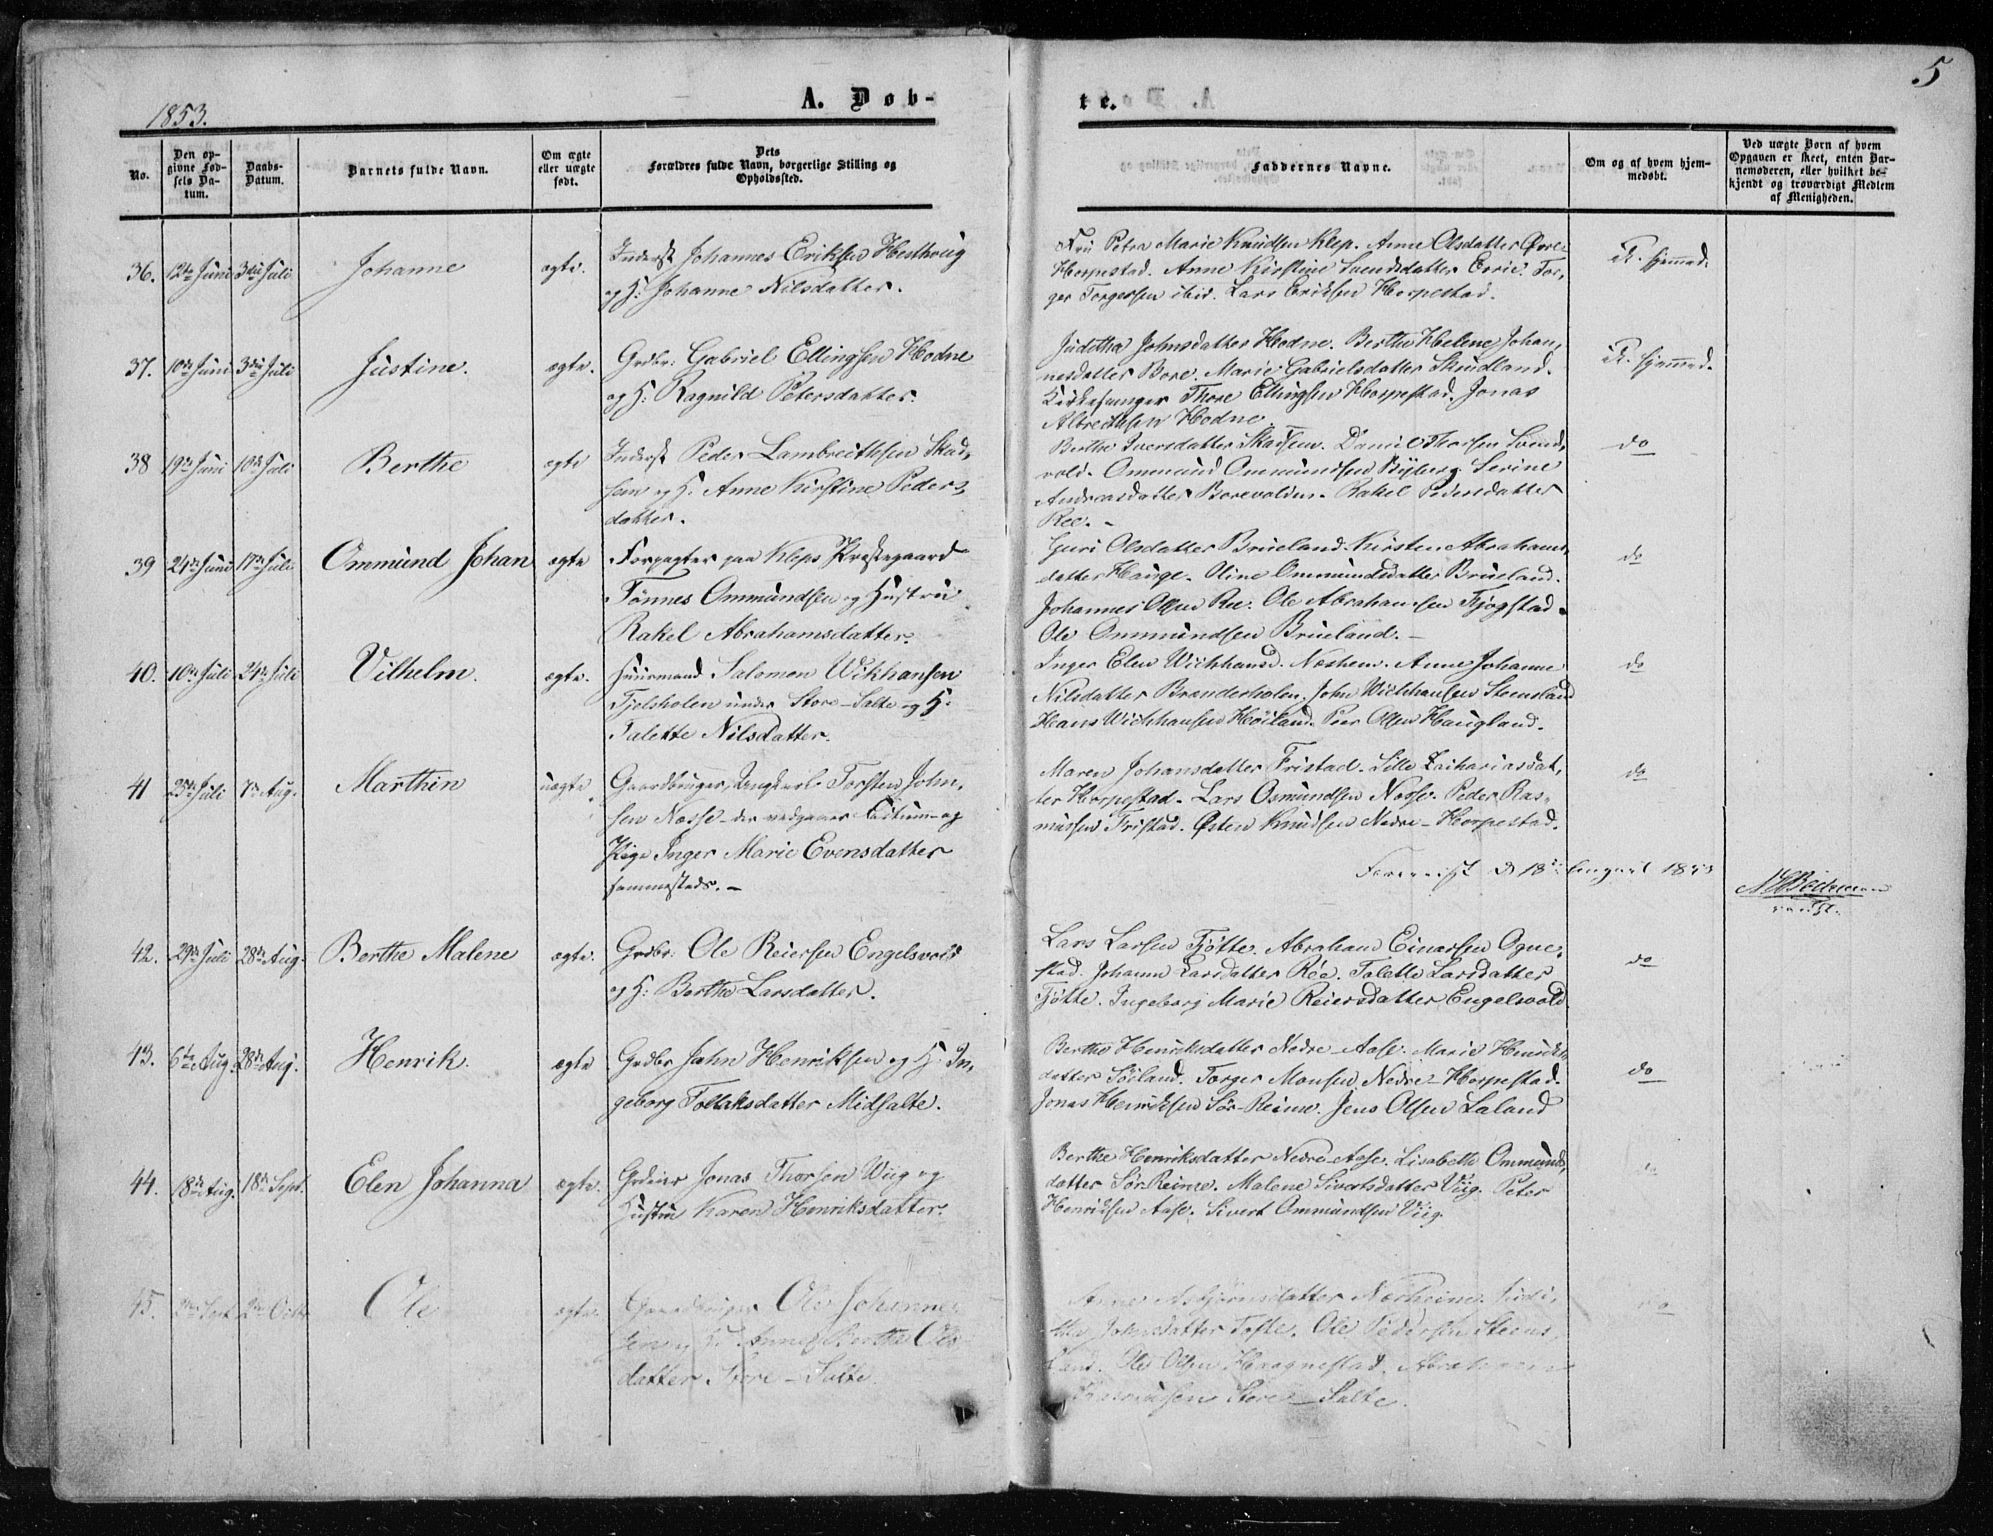 5
1853.
A. Døb-
te.
No.
Den op-
givne Fød-
sels Da-
tum.
Daabs-
Datum.
Barnets fulde Navn.
Om ægte
eller uægte
født.
Dets
Forældres fulde Navn, borgerlige Stilling og
Opholdssted.
Faddernes Navne.
Om og af hvem hjem-
medøbt.
Ved uægte Børn af hvem
Opgaven er skeet, enten Bar-
nemoderen, eller hvilket be-
kjendt og troværdigt Medlem
af Menigheden.
36. 12te Juni 3die Juli Johanne ægte. Inderst Johannes Eriksen Hesthvig
og H: Johanne Nilsdatter.
Fru Petra Marie Knudsen Klep. Anne Olsdatter Øvre-
Horpestad. Anne Kirstine Svendsdatter Ervie. Tor-
ger Torgersen ibid. Lars Eriksen Horpestad.
R. hjemmed.
37. 10de Juni 3die Juli Justine. ægte. Grdbr: Gabriel Ellingsen Hodne
og H: Ragnild Petersdatter.
Juditha Johnsdatter Hodne. Berthe Helene Johan-
nesdatter Bore. Marie Gabrielsdatter Skudland.
Kirkesanger Thore Ellingsen Horpestad. Jonas
Albrethsen Hodne.
R. hjemmed.
38 19de Juni 10de Juli Berthe ægte Inderst Peder Lambrecthsen Skad-
sem og H: Anne Kirstine Peders-
datter.
Berthe Iversdatter Skadsem. Daniel Thorsen Lund-
vold. Ommund Ommundsen Ryberg. Serine
Andreasdatter Borevolden. Rakel Pedersdatter
Ree. -
do
39 24de Juni 17de Juli Ommund Johan ægte Forpagter paa Kleps Præstegaard
Tönnes Ommundsen og Hustru
Rakel Abrahamsdatter.
Guri Olsdatter Brueland. Kirsten Abrahams-
datter Hauge. Oline Ommundsdatter Brueland.
Johannes Olsen Ree. Ole Abrahamsen Fjogstad.
Ole Ommundsen Brueland. -
do
40. 10de Juli 24de Juli Vilhelm. ægte. Huusmand Salomon Wikhansen
Tjelsholen under Store-Salte og H:
Talette Nilsdatter.
Inger Elen Wichhansd. Næshem. Anne Johanne
Nilsdatter Branderholen. John Wichhansen Steensland
Hans Wichhansen Höiland. Peer Olsen Haugland.
do
41 25de Juli 7de Aug. Marthin uægte Gaardbruger, Ungkarl Torsten John-
sen Næsse - der vedgaaer Coitum - og
Pige Inger Marie Evensdatter
sammesteds. -
Maren Johansdatter Fristad. Lille Zachariasdat-
ter Horpestad. Lars Osmundsen Næsse. Peder Ras-
mussen Fristad. Østen Knudsen Nedre-Horpestad.
do
Foreviist d 18de August 1853
42. 29de Juli 28de Aug. Berthe Malene ægte. Grdbr: Ole Reiersen Engelsvold
og H: Berthe Larsdatter.
Lars Larsen Tjøtte. Abraham Einarsen Ogne-
stad. Johanne Larsdatter Rée. Talette Larsdatter
Tjøtte. Ingeborg Marie Reiersdatter Engelsvold.
do
43. 6te Aug. 28de Aug. Henrik. ægte Grdbr John Henriksen og H: In-
geborg Tollaksdatter Midsalte.
Berthe Henriksdatter Nedre-Aase. Marie Henriks-
datter Söiland. Torger Monsen Nedre-Horpestad.
Jonas Henriksen Sör-Reime. Jens Olsen Laland
do
44. 18de Aug. 18de Sept. Elen Johanna ægte. Grdeier Jonas Thorsen Wiig og
Hustru Karen Henriksdatter.
Berthe Henriksdatter Nedre-Aase. Lisabeth Ommunds-
datter Sör-Reime. Malene Sivertsdatter Viig. Peter
Henriksen Aase. Sivert Ommundsen Viig.
do
45. Sept 2den Octbr Ole ægte. Gaardbruger Ole Johanne-
sen og H: Anne Berthe Ols-
datter Store-Salte.
Anne Asbjørnsdatter Nærheim. Judi-
tha Johnsdatter Tofte. Ole Pedersen Steens-
land. Ole Olsen Haugnestad. Abraham
Rasmussen Store-Salte.
do